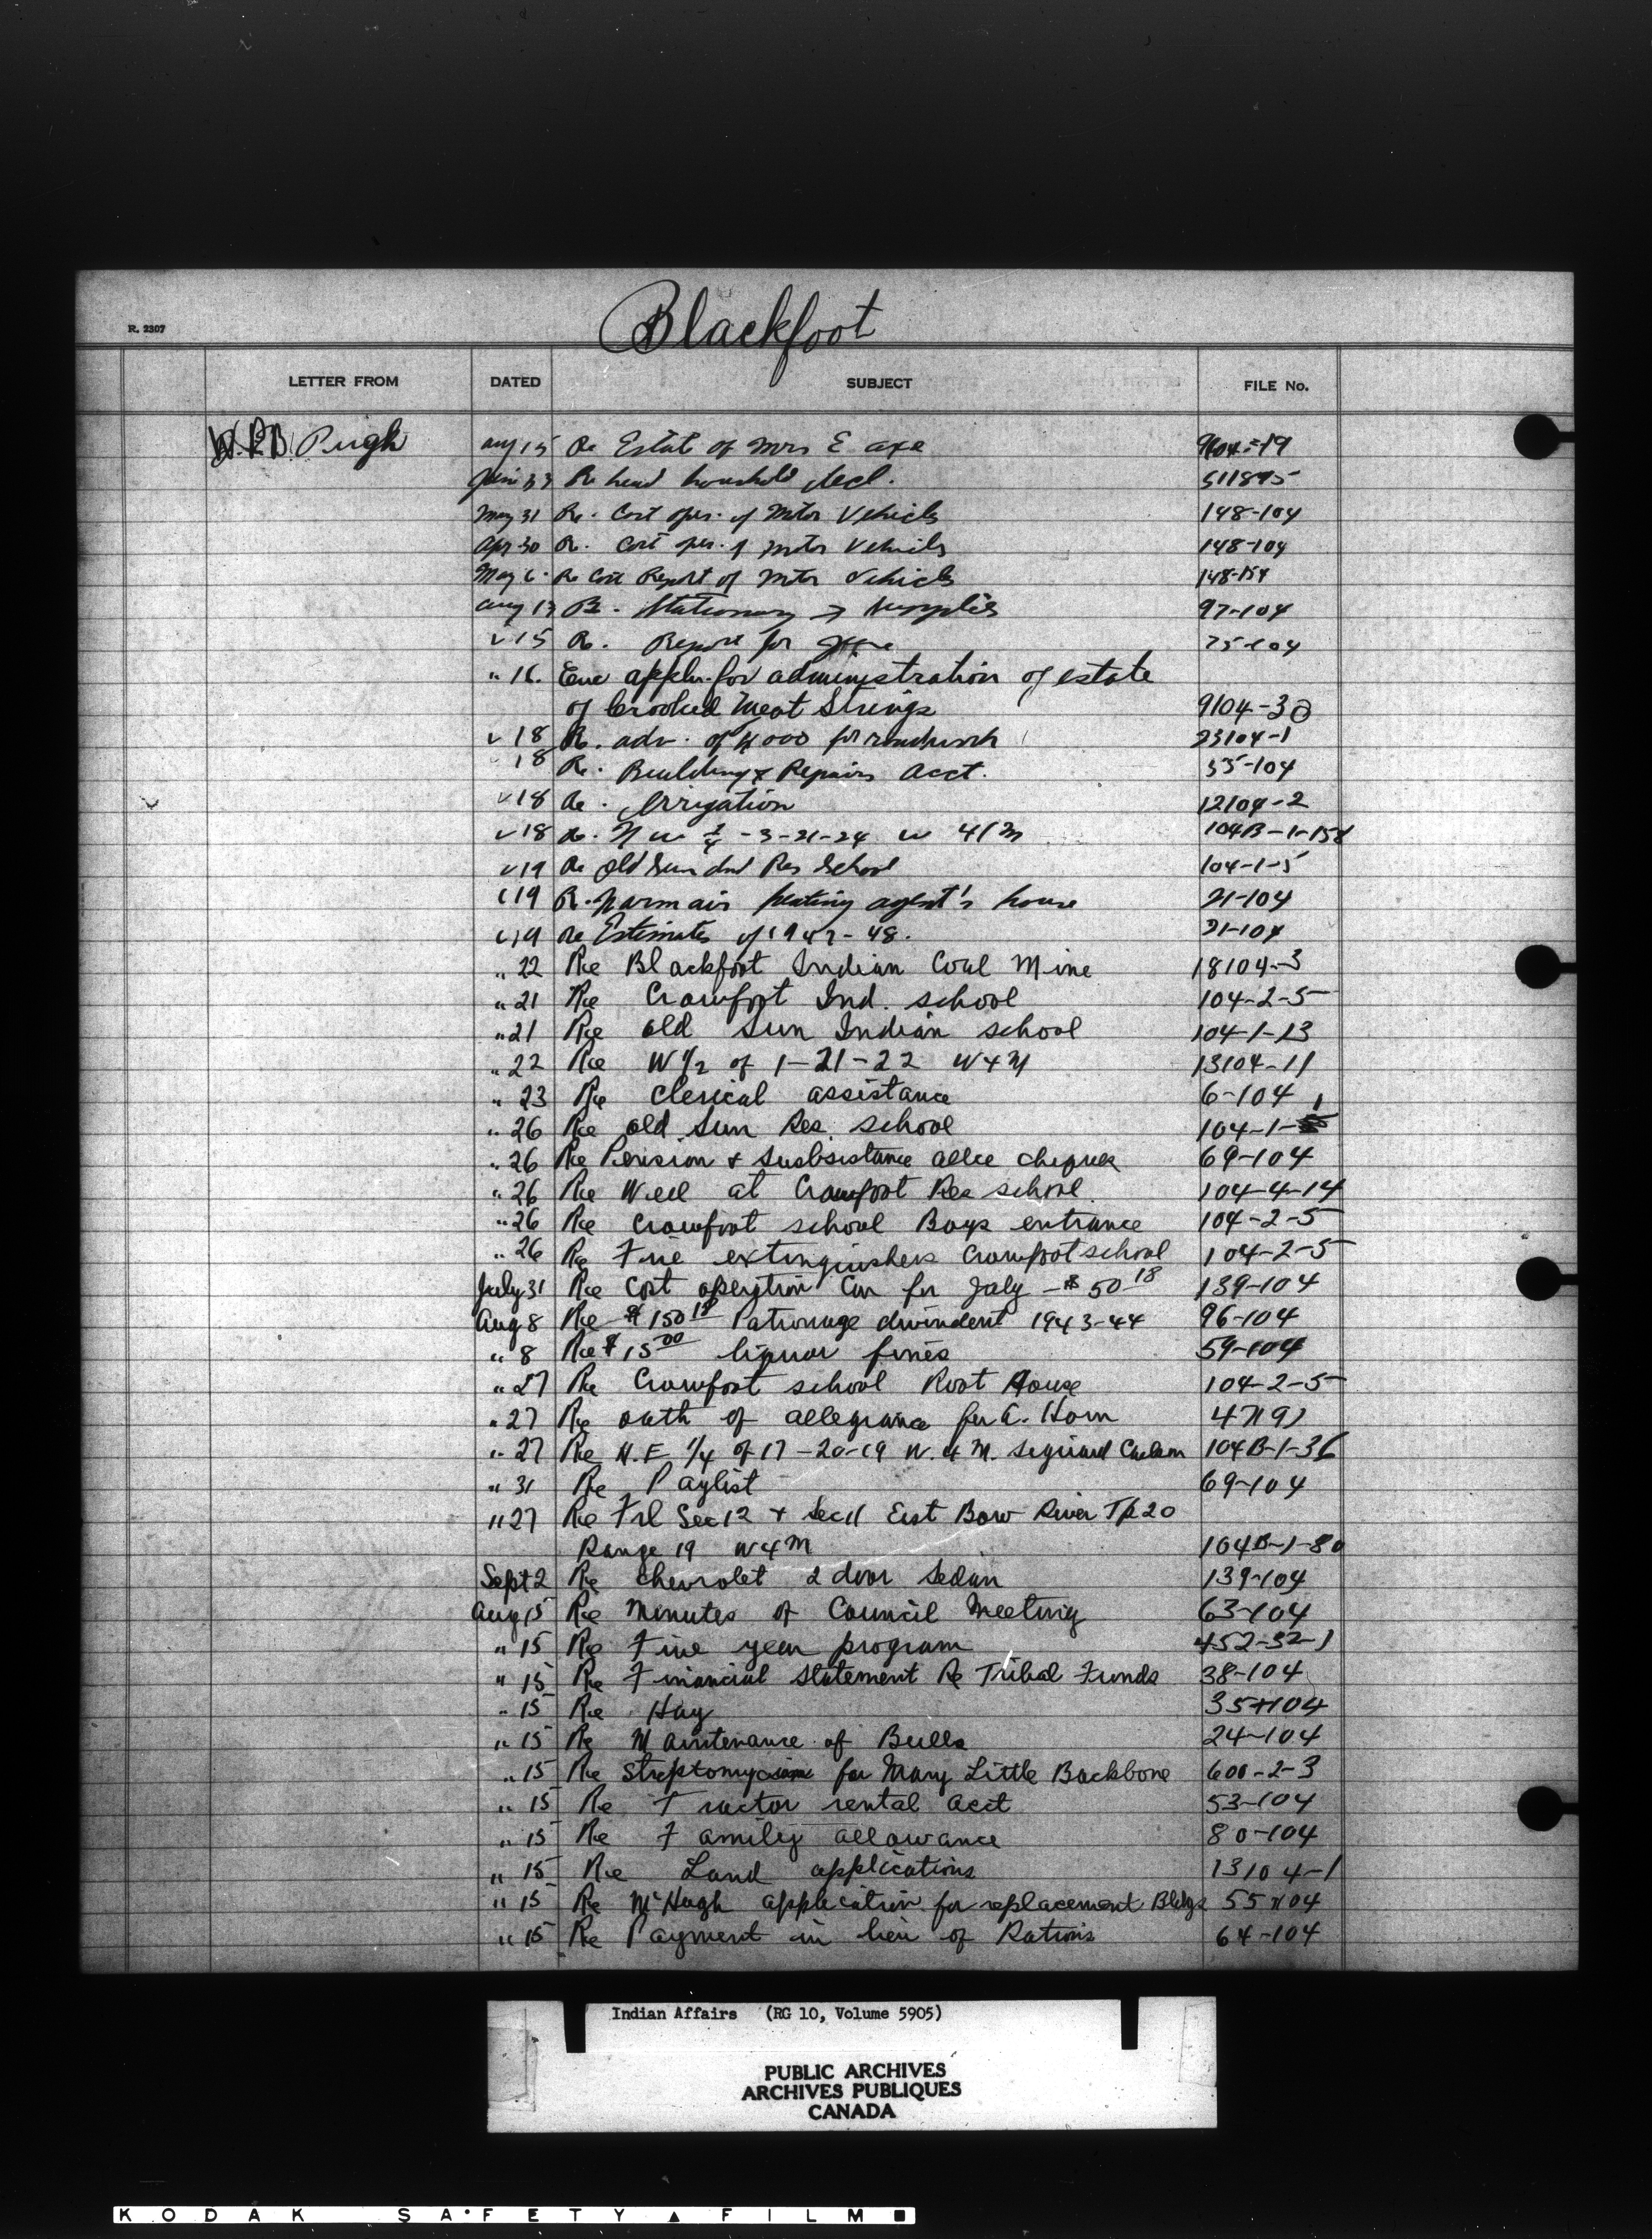 R. 2307
Blackfoot
LETTER FROM DATED SUBJECT FILE No.
Pugh Aug 15 Re Estat of Mrs E Axe
Re head houshold decl. 511895
May 31 Re. Cost oper. of Motor Vehicls 148-104
Apr 30 Re. Cost per. of motor Vehicls 148-104
May 6. Re Cost Report of Mtr Vehicls
Aug 13 Re. Stationary & Supplies 97-104
" 15 Re. Report for 75-104
" 16. Enc appln. for administration of estate
of Crooked Meat Strings 9104-30
" 18 Re. adv. of 4000 for 23104-1
" 18 Re. Building & Repairs Acct. 35-104
" 18 Re. Irrigation 12104-2
" 18 Re. N W 1/4 -3-21-24 W 4/M 104B-1-158
" 19 Re Old Sun Ind Res School 104-1-5
" 19 Re. Warm air heating agent's house 21-104
" 19 Re Estimates of 1947-48. 21-104
" 22 Re Blackfoot Indian Coal Mine 18104-3
" 21 Re Crowfoot Ind. school 104-2-5
" 21 Re old Sun Indian school 104-1-13
" 22 Re W 1/2 of 1-21-22 W4M 13104-11
" 23 Re clerical assistance 6-104
" 26 Re old Sun Res. school 104-1-1
" 26 Re Pension & Susbsistance allce cheques 69-104
" 26 Re Well at Crowfoot Res school. 104-4-14
" 26 Re Crowfoot school Boys entrance 104-2-5
" 26 Re Fire extinguishers Crowfoot school 104-2-5
July 31 Re Cost operation Car for July - $50 18 139-104
Aug 8 Re $150 18 Patronage divindent 1943-44 96-104
" 8 Re $15 00 liquor fines 59-104
" 27 Re Crowfoot school Root House 104-2-5
" 27 Re oath of allegiance for A. Horn
" 27 Re N.E 1/4 of 17-20-19 W. 4 M. 104B-1-36
" 31 Re Paylist 69-104
" 27 Re Frl Sec 12 & Sec 11 East Bow River Tp 20
Range 19 W4M 104B-1-80
Sept 2 Re Chevrolet 2 door Sedan 139-104
Aug 15 Re Minutes of Council Meeting 63-104
" 15 Re Five year program 452-32-1
" 15 Re Financial Statement Re Tribal Funds 38-104
" 15 Re Hay 35-104
" 15 Re Maintenance of Bulls 24-104
" 15 Re Streptomycin for Mary Little Backbone 600-2-3
" 15 Re Tractor rental Acct 53-104
" 15 Re Family allowance 80-104
" 15 Re Land applications 13104-1
" 15 Re McHugh application for replacement Bldgs 55-104
" 15 Re Payment in lieu of Rations 64-104
Indian Affairs (RG 10, Volume 5905)
PUBLIC ARCHIVES
ARCHIVES PUBLIQUES
CANADA
KODAK SAFETY FILM